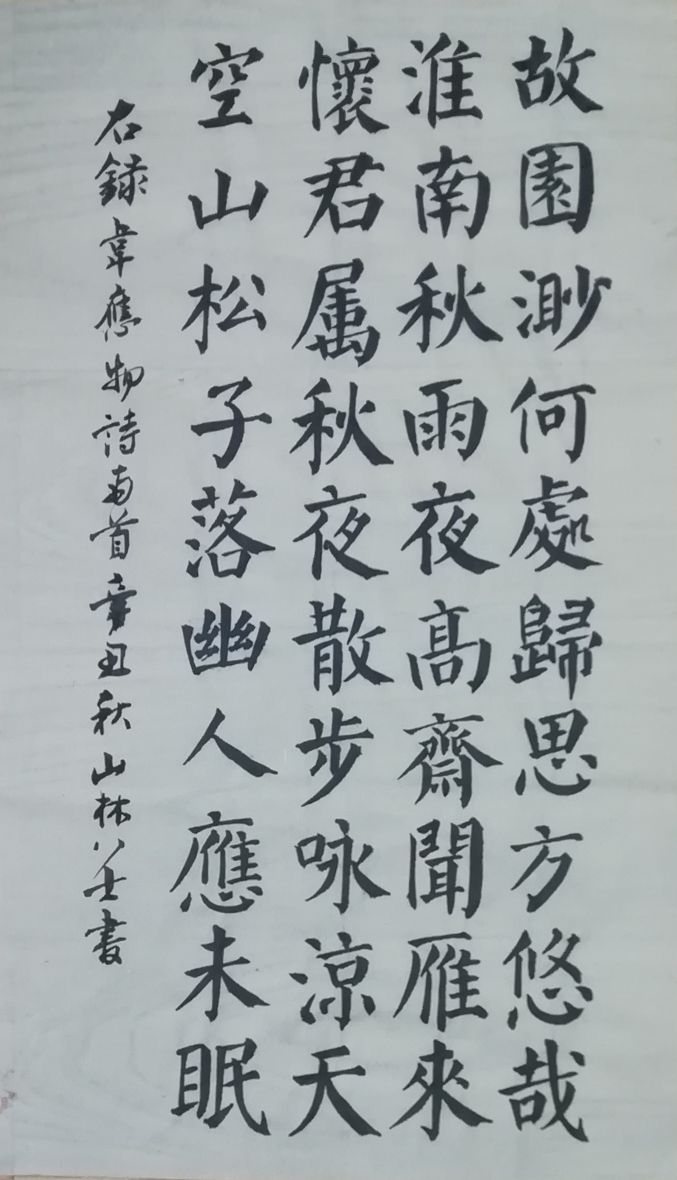 故園渺何處歸思方悠哉
淮南秋雨夜高齋聞雁來
懷君属秋夜散步咏涼天
空山松子落幽人應未眠
右録韋應物詩两首辛丑秋山林八士書